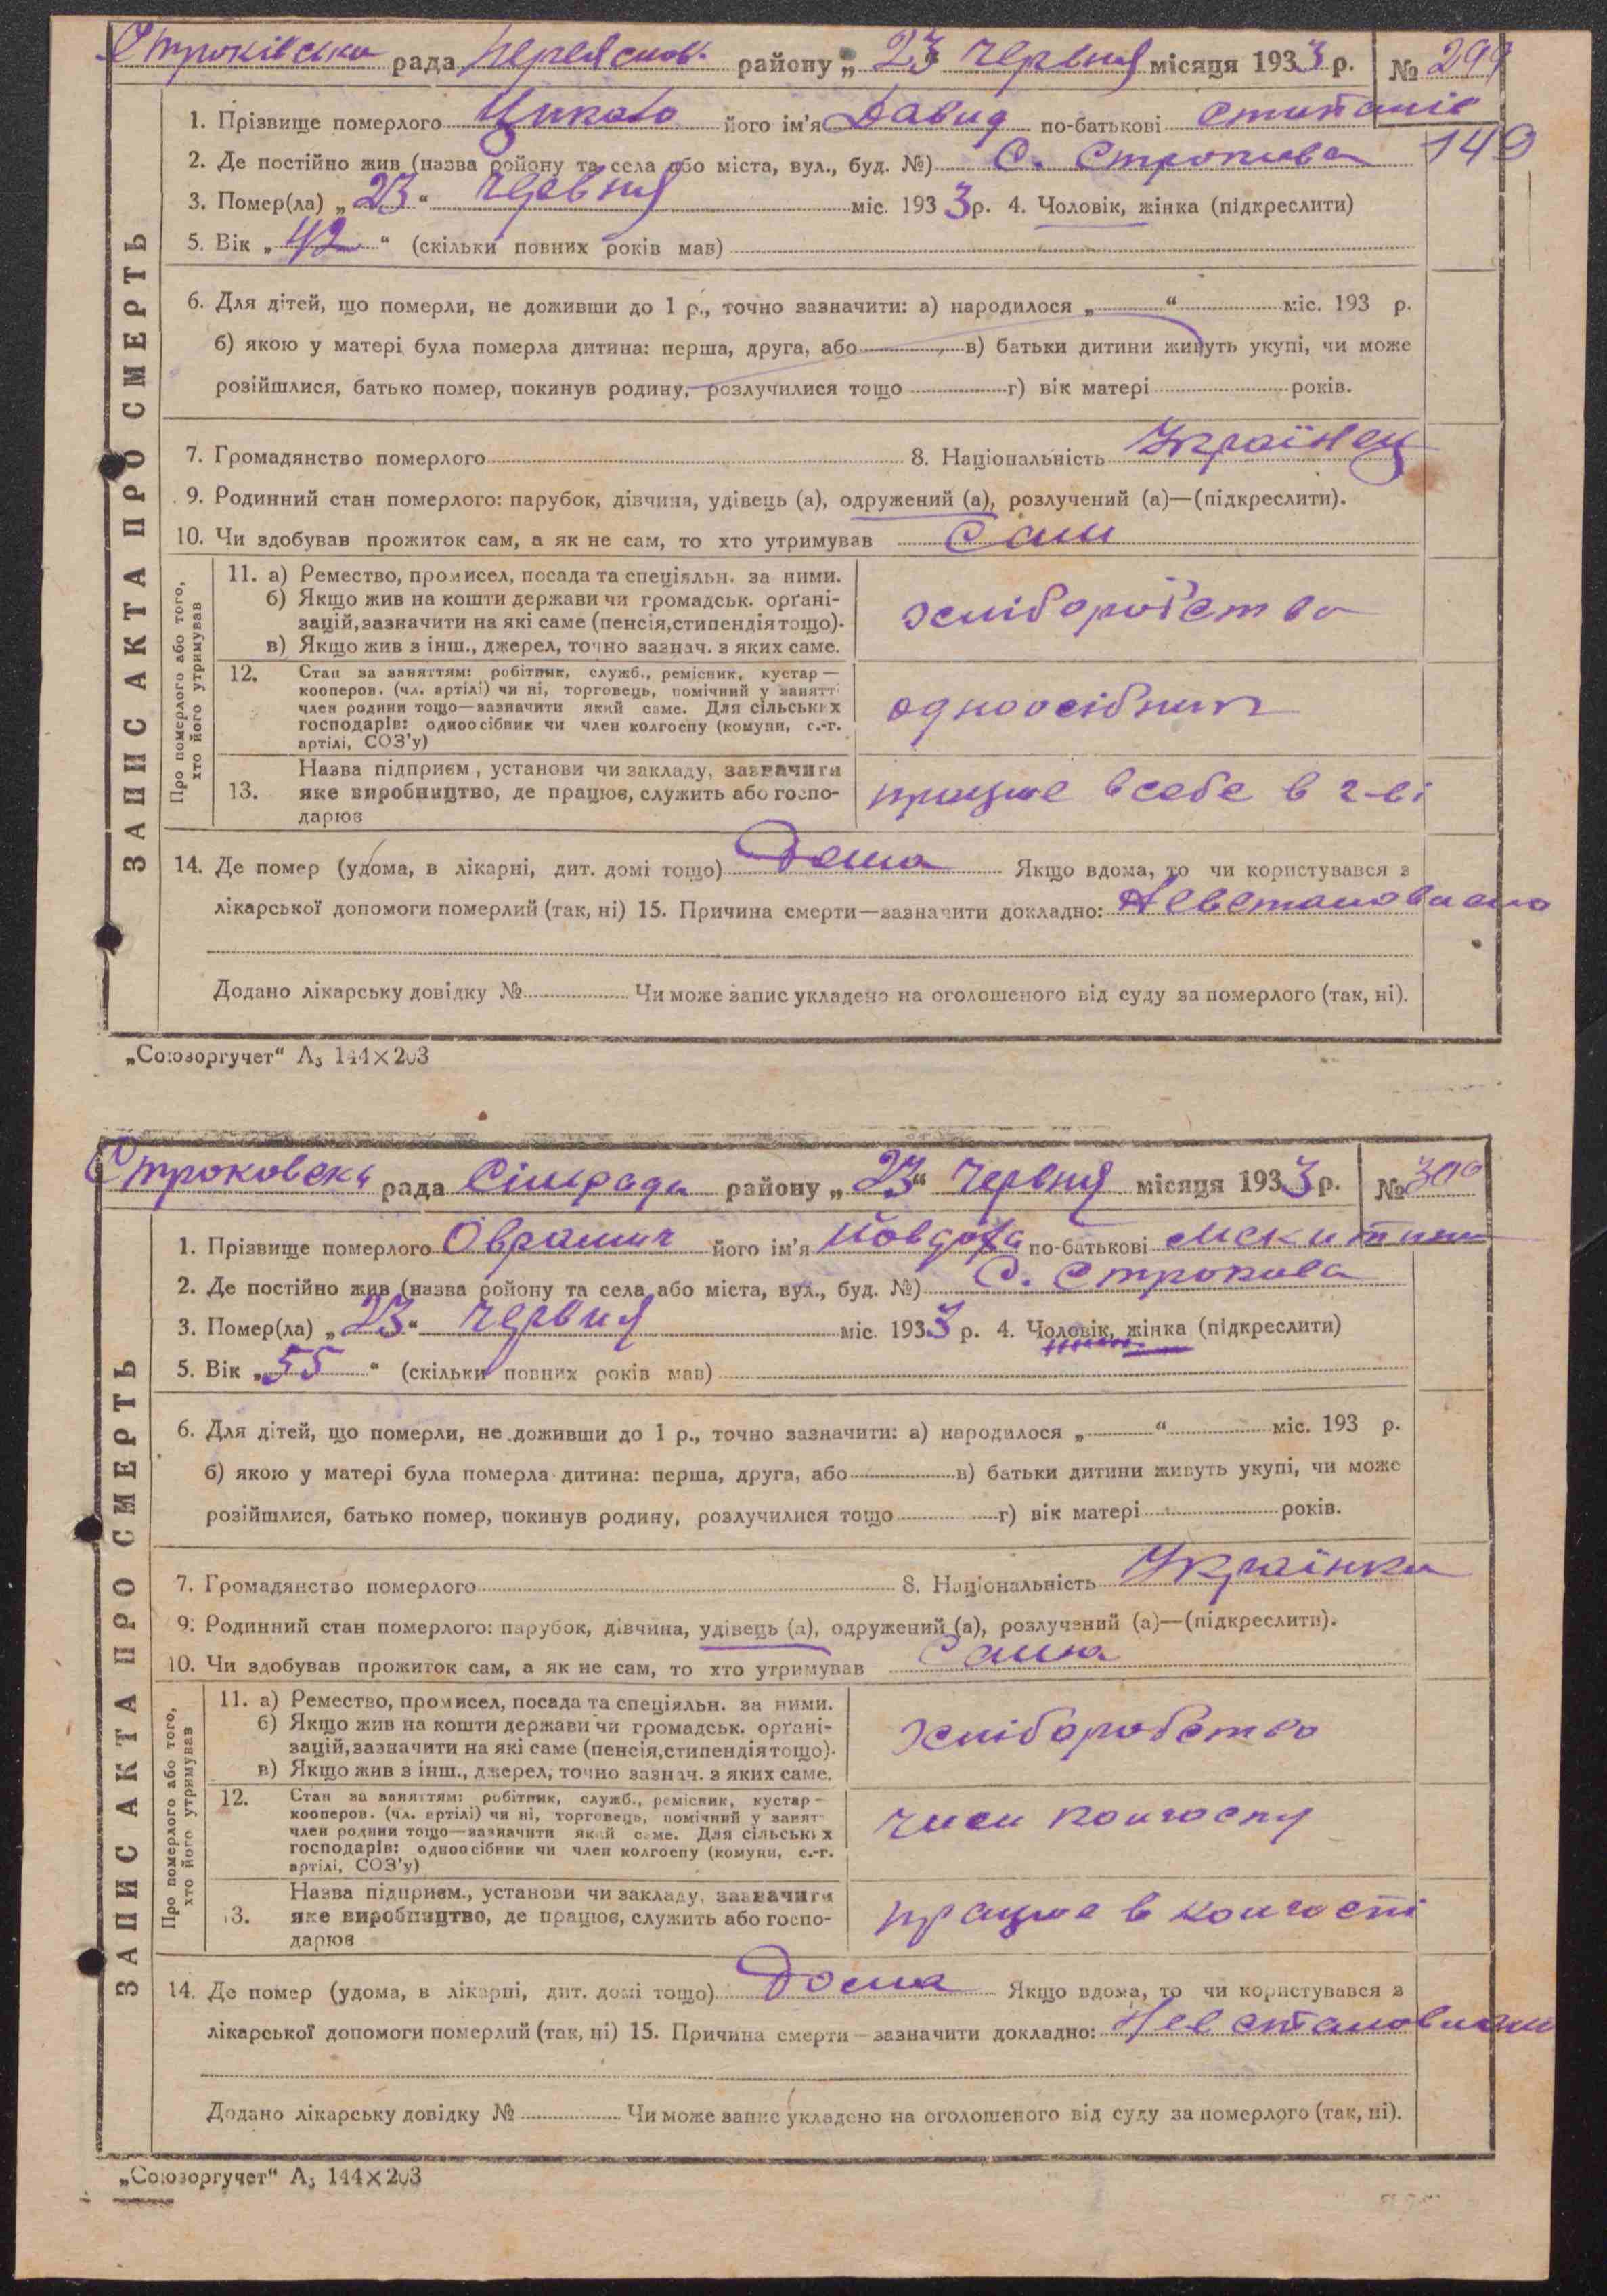 Строківська рада Переяслов. району „23" Червня місяця 1933 р. № 299
1. Прізвище померлого його ім'я Давид по-батькові
149
2. Де постійно жив (назва району та села або міста, вул., буд. №) С. Строкова
3. Помер(ла) „23" Червня міс. 1933 р. 4. Чоловік, жінка (підкреслити)
5. Вік „42" (скільки повних років мав)
6. Для дітей, що померли, не доживши до 1 р., точно зазначити: а) народилося „ " міс. 193 р.
б) якою у матері була померла дитина: перша, друга, або в) батьки дитини живуть укупі, чи може
розійшлися, батько помер, покинув родину, розлучилися тощо г) вік матері років.
7. Громадянство померлого 8. Національність Українец
9. Родинний стан померлого: парубок, дівчина, удівець (а), одружений (а), розлучений (а)—(підкреслити).
10. Чи здобував прожиток сам, а як не сам, то хто утримував Сам
ЗАПИС АКТА ПРО СМЕРТЬ
Про померлого або того, хто його утримував
11. а) Ремество, промисел, посада та спеціяльн. за ними.
б) Якщо жив на кошти держави чи громадськ. орґані-
зацій, зазначити на які саме (пенсія, стипендія тощо).
в) Якщо жив з інш., джерел, точно зазнач. з яких саме.
хліборобство
12. Стан за заняттям: робітник, служб., ремісник, кустар—
кооперов. (чл. артілі) чи ні, торговець, помічний у занятт
член родини тощо—зазначити який саме. Для сільських
господарів: одноосібник чи член колгоспу (комуни, с.-г.
артілі, СОЗ'у)
одноосібник
13. Назва підприєм., установи чи закладу, зазначити
яке виробництво, де працює, служить або госпо-
дарює
працює в себе в г-ві
14. Де помер (удома, в лікарні, дит. домі тощо) Дома Якщо вдома, то чи користувався з
лікарської допомоги померлий (так, ні) 15. Причина смерти—зазначити докладно: Невстановлено
Додано лікарську довідку № Чи може запис укладено на оголошеного від суду за померлого (так, ні).
„Союзоргучет" А₅ 144×203
Строковска рада Сільрада району „23" Червня місяця 1933 р. № 300
1. Прізвище померлого його ім'я по-батькові
2. Де постійно жив (назва району та села або міста, вул., буд. №) С. Строкова
3. Помер(ла) „23" Червня міс. 1933 р. 4. Чоловік, жінка (підкреслити)
5. Вік „55" (скільки повних років мав)
6. Для дітей, що померли, не доживши до 1 р., точно зазначити: а) народилося „ " міс. 193 р.
б) якою у матері була померла дитина: перша, друга, або в) батьки дитини живуть укупі, чи може
розійшлися, батько помер, покинув родину, розлучилися тощо г) вік матері років.
7. Громадянство померлого 8. Національність Українка
9. Родинний стан померлого: парубок, дівчина, удівець (а), одружений (а), розлучений (а)—(підкреслити).
10. Чи здобував прожиток сам, а як не сам, то хто утримував Сама
ЗАПИС АКТА ПРО СМЕРТЬ
Про померлого або того, хто його утримував
11. а) Ремество, промисел, посада та спеціяльн. за ними.
б) Якщо жив на кошти держави чи громадськ. орґані-
зацій, зазначити на які саме (пенсія, стипендія тощо).
в) Якщо жив з інш., джерел, точно зазнач. з яких саме.
хліборобство
12. Стан за заняттям: робітник, служб., ремісник, кустар—
кооперов. (чл. артілі) чи ні, торговець, помічний у занят
член родини тощо—зазначити який саме. Для сільських
господарів: одноосібник чи член колгоспу (комуни, с.-г.
артілі, СОЗ'у)
член колгоспу
13. Назва підприєм., установи чи закладу, зазначити
яке виробництво, де працює, служить або госпо-
дарює
працює в колгоспі
14. Де помер (удома, в лікарні, дит. домі тощо) Дома Якщо вдома, то чи користувався з
лікарської допомоги померлий (так, ні) 15. Причина смерти—зазначити докладно: Невстановлено
Додано лікарську довідку № Чи може запис укладено на оголошеного від суду за померлого (так, ні).
„Союзоргучет" А₅ 144×203